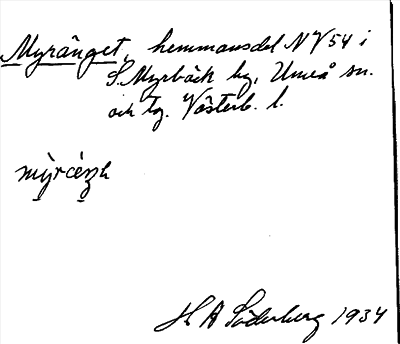 Myränget, hemmansdel N V54 i
S. Myrbäck by, Umeå sn.
och tg. Västerb. l.
H A Söderberg 1934